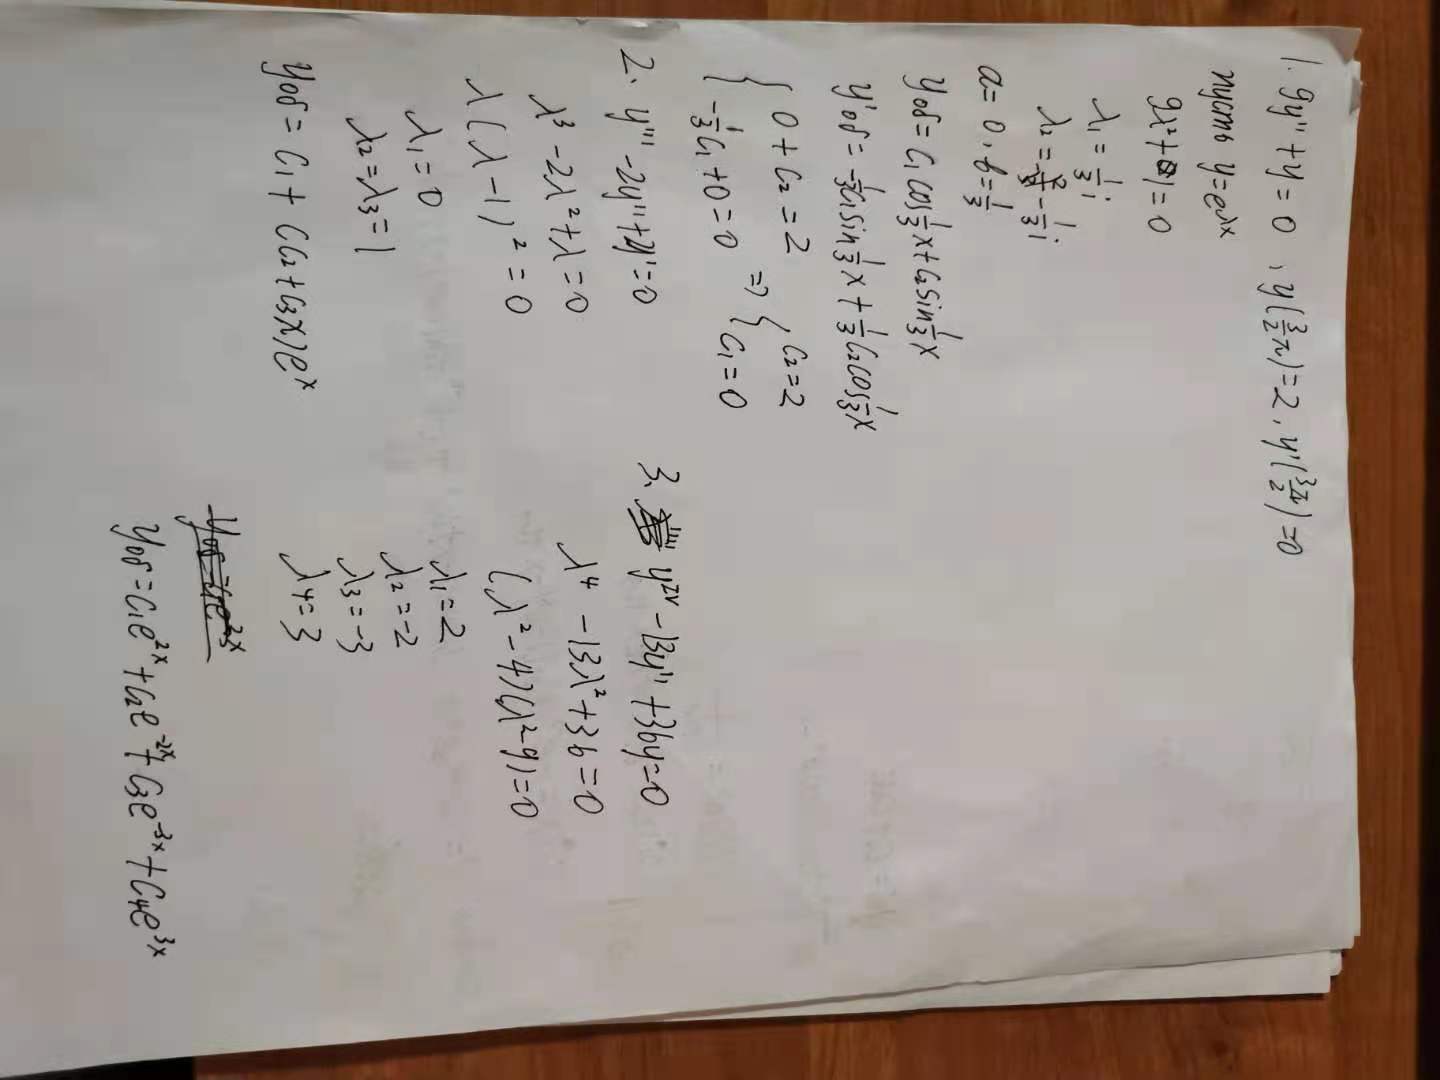 1. 9y'' + y = 0 , y(3/2 π) = 2 , y'(3π/2) = 0
пусть y = e^λx
9λ² + 1 = 0
λ₁ = 1/3 i
λ₂ = - 1/3 i
a = 0 , b = 1/3
Yоб = C₁ cos 1/3 x + C₂ sin 1/3 x
Y'об = -1/3 C₁ sin 1/3 x + 1/3 C₂ cos 1/3 x
{ 0 + C₂ = 2 ⇒ { C₂ = 2
-1/3 C₁ + 0 = 0 C₁ = 0
2. y''' - 2y'' + y' = 0
λ³ - 2λ² + λ = 0
λ(λ - 1)² = 0
λ₁ = 0
λ₂ = λ₃ = 1
Yоб = C₁ + (C₂ + C₃x)e^x
3. y^IV - 13y'' + 36y = 0
λ⁴ - 13λ² + 36 = 0
(λ² - 4)(λ² - 9) = 0
λ₁ = 2
λ₂ = -2
λ₃ = -3
λ₄ = 3
Yоб = C₁e^2x
Yоб = C₁e^2x + C₂e^-2x + C₃e^-3x + C₄e^3x